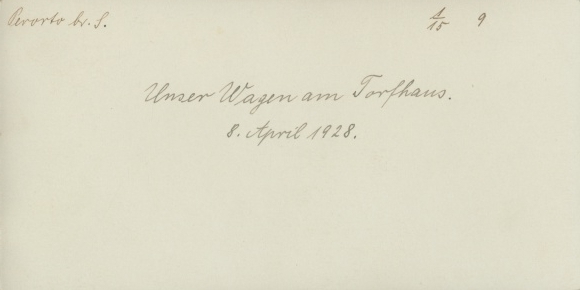 Perorto br. S. 1/15 9
Unser Wagen am Torfhaus.
8. April 1928.